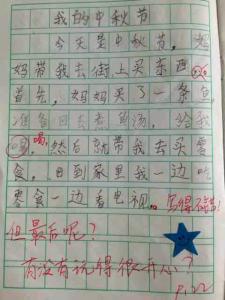 我的中秋节
今天是中秋节，妈
妈带我去街上买东西。
首先，妈妈买了一条鱼，
准备回去煮鱼汤，给我
喝，然后就带我去买零
食，回到家里我一边吃
零食一边看电视。写得不错！
但最后呢？
有没有玩得很开心？